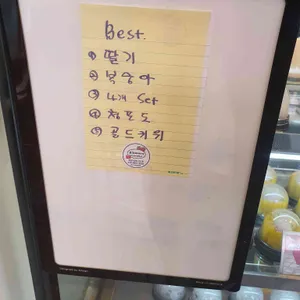 Best.
① 딸기
② 복숭아
③ 4개 Set
④ 청포도
⑤ 골드키위